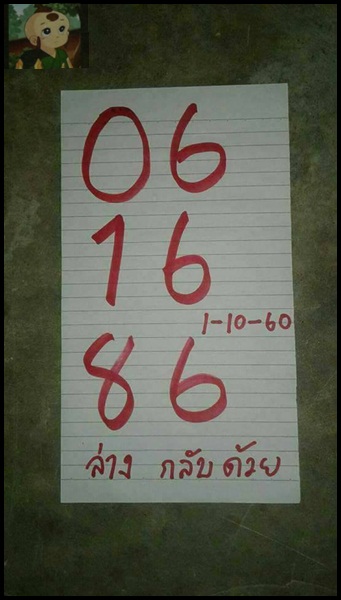 06
16
1-10-60
86
ล่าง กลับ ด้วย